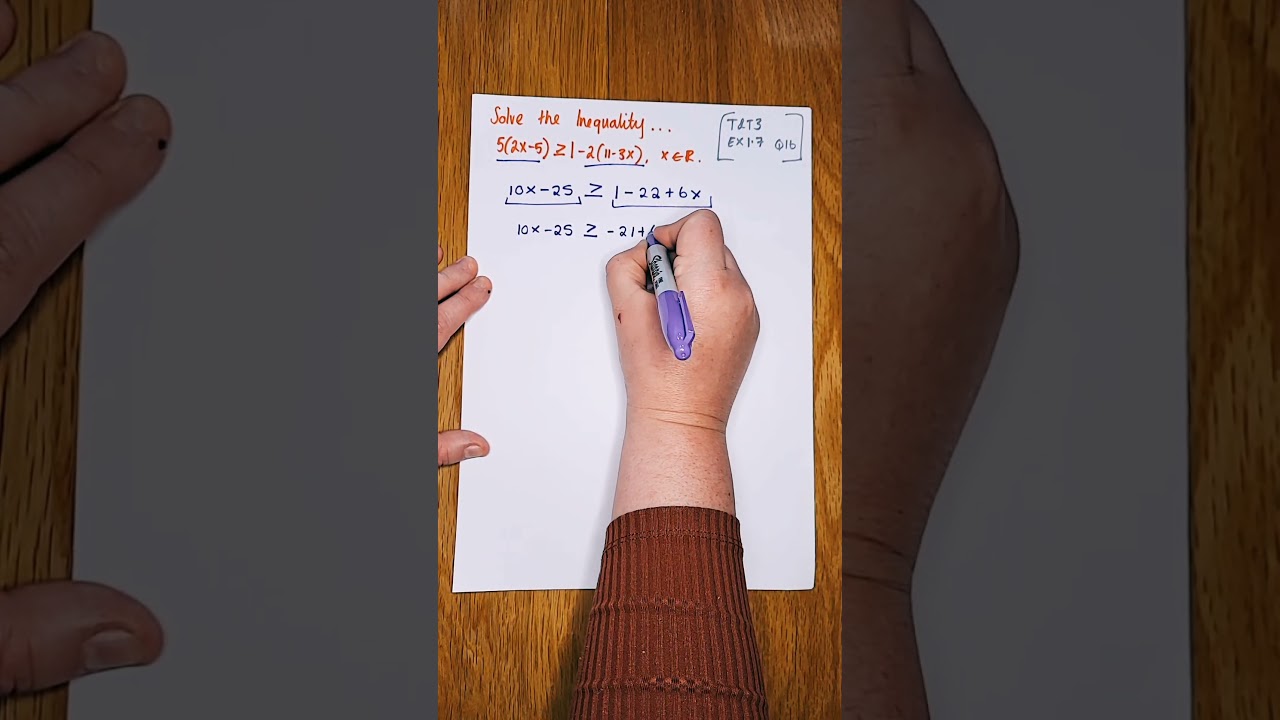 Solve the Inequality...
5(2x-5) ≥ 1-2(11-3x), x ∈ ℝ.
[T&T3
EX 1.7 Q16]
10x-25 ≥ 1-22+6x
10x-25 ≥ -21+
Sharpie